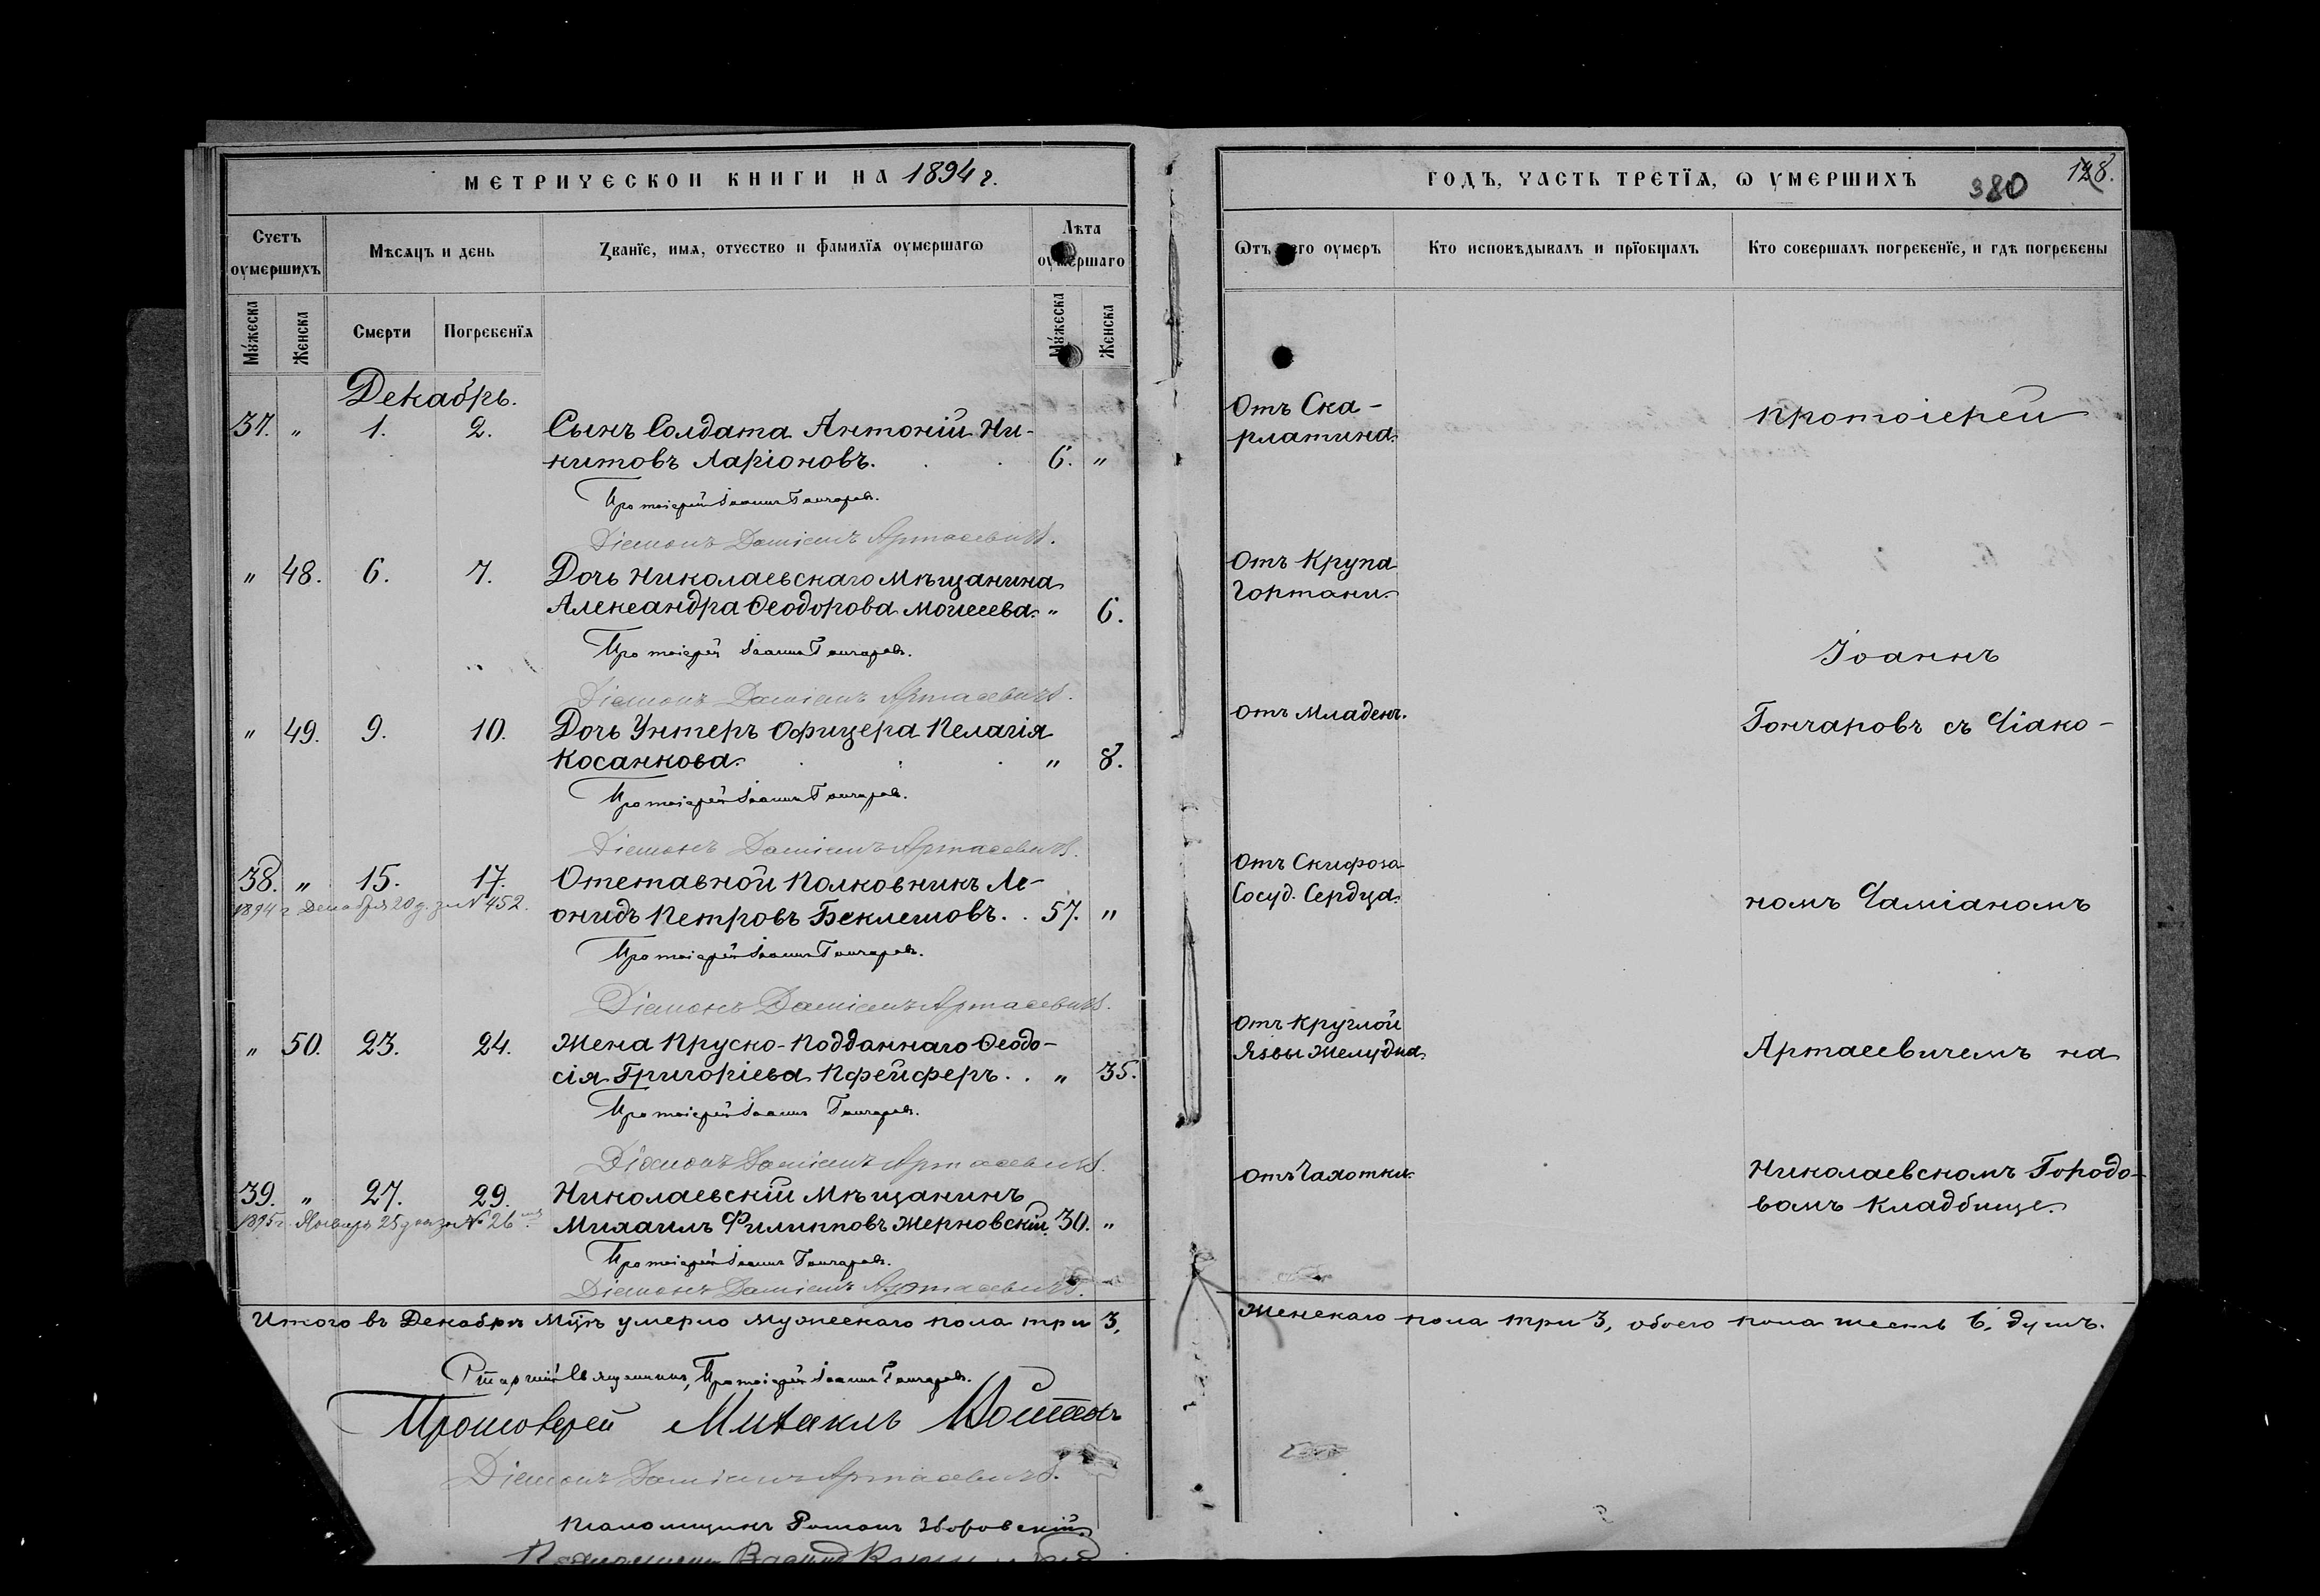 МЕТРИЧЕСКОЙ КНИГИ НА 1894 г.
Счетъ оумершихъ
Мѣсяцъ и день
Званїе, имя, отчество и фамилїя оумершагѡ
Лѣта оумершаго
Мꙋжеска
Женска
Смерти
Погребенїя
Мꙋжеска
Женска
Декабрь.
37. " 1. 2. Сынъ Солдата Антоній Ни-
китовъ Ларіоновъ. 6. "
Протоіерей Іоаннъ Гончаровъ.
Діаконъ Даміанъ Артасевичъ.
" 48. 6. 7. Дочь Николаевскаго Мѣщанина
Александра Ѳеодорова Моисеева. " 6.
Протоіерей Іоаннъ Гончаровъ.
Діаконъ Даміанъ Артасевичъ.
" 49. 9. 10. Дочь Унтеръ Офицера Пелагія
Косанкова. " 8.
Протоіерей Іоаннъ Гончаровъ.
Діаконъ Даміанъ Артасевичъ.
38. " 15. 17. Отставной Полковникъ Ле-
1894 г. Декабря 20 д. за № 452.
онидъ Петровъ Беклешовъ. . 57. "
Протоіерей Іоаннъ Гончаровъ.
Діаконъ Даміанъ Артасевичъ.
" 50. 23. 24. Жена Пруско-Подданнаго Ѳеодо-
сія Григоріева Пфейферъ. . " 35.
Протоіерей Іоаннъ Гончаровъ.
Діаконъ Даміанъ Артасевичъ.
39. " 27. 29. Николаевскій Мѣщанинъ
1895 г. Января 25 дня за № 26
Михаилъ Филипповъ Жерновскій. 30. "
Протоіерей Іоаннъ Гончаровъ.
Діаконъ Даміанъ Артасевичъ.
Итого въ Декабрѣ Мцѣ умерло Мужескаго пола три 3,
Старшій Священникъ, Протоіерей Іоаннъ Гончаровъ.
Протоіерей Михаилъ
Діаконъ Даміанъ Артасевичъ.
Псаломщикъ Романъ Зборовскій
ГОДЪ, ЧАСТЬ ТРЕТЇЯ, Ѡ УМЕРШИХЪ
380
128.
Ѿтъ чего оумеръ
Кто исповѣдывалъ и прїобщалъ
Кто совершалъ погребенїе, и гдѣ погребены
Отъ Ска-
рлатина.
Протоіерей
Отъ Крупа
Гортани.
Іоаннъ
Отъ Младен.
Гончаровъ съ Діако-
Отъ Скифоза
Сосуд. Сердца.
номъ Даміаномъ
Отъ Круглой
Язвы Желудка.
Артасевичемъ на
Отъ Чахотки.
Николаевскомъ Городо-
вомъ Кладбище.
Женскаго пола три 3, обоего пола шесть 6, душъ.